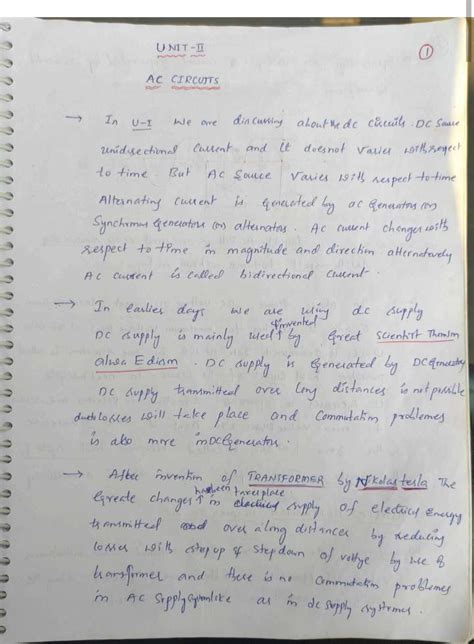 UNIT-II
①
AC CIRCUITS
→ In U-I we are discussing about the dc circuits. DC Source
unidirectional current and it doesnot varies with respect
to time. But AC Source Varies with respect to time
Alternating current is generated by ac generators (or)
Synchronous generators (or) alternators. AC current changes with
respect to time in magnitude and direction alternatively
AC current is called bidirectional current.
→ In earlies days we are using dc supply
DC supply is mainly invented by Great Scientist Thomson
alwa Edison. DC supply is generated by DC generators
DC supply transmitted over long distances is not possible
due to losses will take place and Commutation problemes
is also more in DC generator.
→ After invention of TRANSFORMER by Nikolas tesla The
greate changes has been taken place in supply of electrical energy
transmitted over along distances by reducing
losses with step up & step down of voltage by use of
transformer and there is no Commutation problems
in AC Supply system like as in dc supply systems.